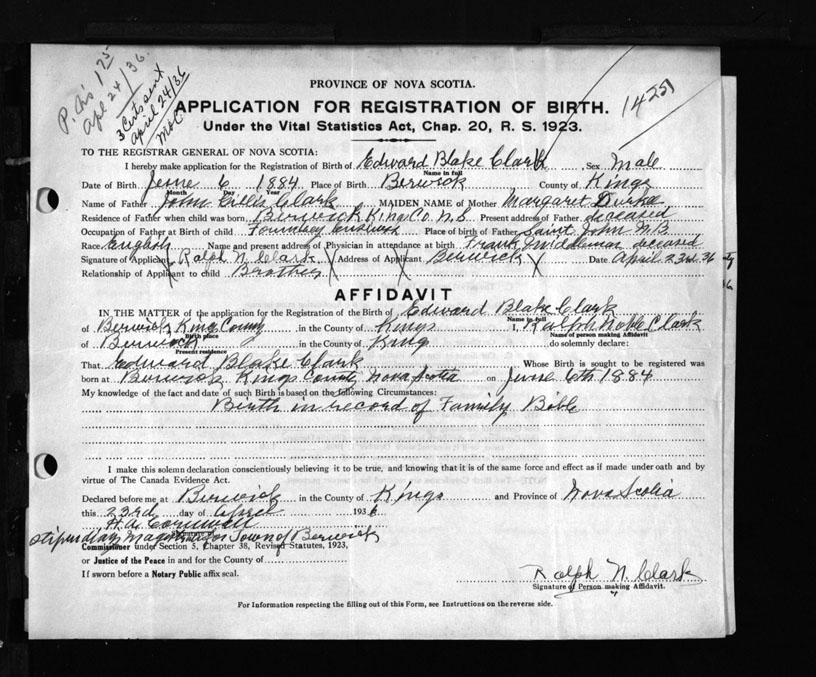 P. chs 1 75
Apl 24/36.
3 Certs sent
April 24/36
1425
PROVINCE OF NOVA SCOTIA.
APPLICATION FOR REGISTRATION OF BIRTH.
Under the Vital Statistics Act, Chap. 20, R. S. 1923.
TO THE REGISTRAR GENERAL OF NOVA SCOTIA:
I hereby make application for the Registration of Birth of Edward Blake Clark Sex Male
Name in full
Date of Birth June 6 1884 Place of Birth Berwick County of Kings
Month Day Year
Name of Father John Clark MAIDEN NAME of Mother Margaret
Residence of Father when child was born Berwick Kings Co. N.S Present address of Father deceased
Occupation of Father at Birth of child Foundry business Place of birth of Father Saint John N.B.
Race English Name and present address of Physician in attendance at birth Frank Middlemas deceased
Signature of Applicant Ralph N. Clark Address of Applicant Berwick Date April 23rd 36
Relationship of Applicant to child Brother
AFFIDAVIT
IN THE MATTER of the application for the Registration of the Birth of Edward Blake Clark
Name in full
of Berwick Kings County, in the County of Kings I, Ralph Noble Clark
Birth place Name of person making Affidavit
of Berwick in the County of Kings do solemnly declare:
Present residence
That Edward Blake Clark Whose Birth is sought to be registered was
born at Berwick Kings County Nova Scotia on June 6th 1884
My knowledge of the fact and date of such Birth is based on the following Circumstances:
Birth in record of Family Bible
I make this solemn declaration conscientiously believing it to be true, and knowing that it is of the same force and effect as if made under oath and by
virtue of The Canada Evidence Act.
Declared before me at Berwick in the County of Kings and Province of Nova Scotia
this 23rd day of April 1936
H. A. Cornwall
Stipendiary Magistrate for Town of Berwick
Commissioner under Section 5, Chapter 38, Revised Statutes, 1923,
or Justice of the Peace in and for the County of
If sworn before a Notary Public affix seal.
Ralph N. Clark
Signature of Person making Affidavit.
For Information respecting the filling out of this Form, see Instructions on the reverse side.